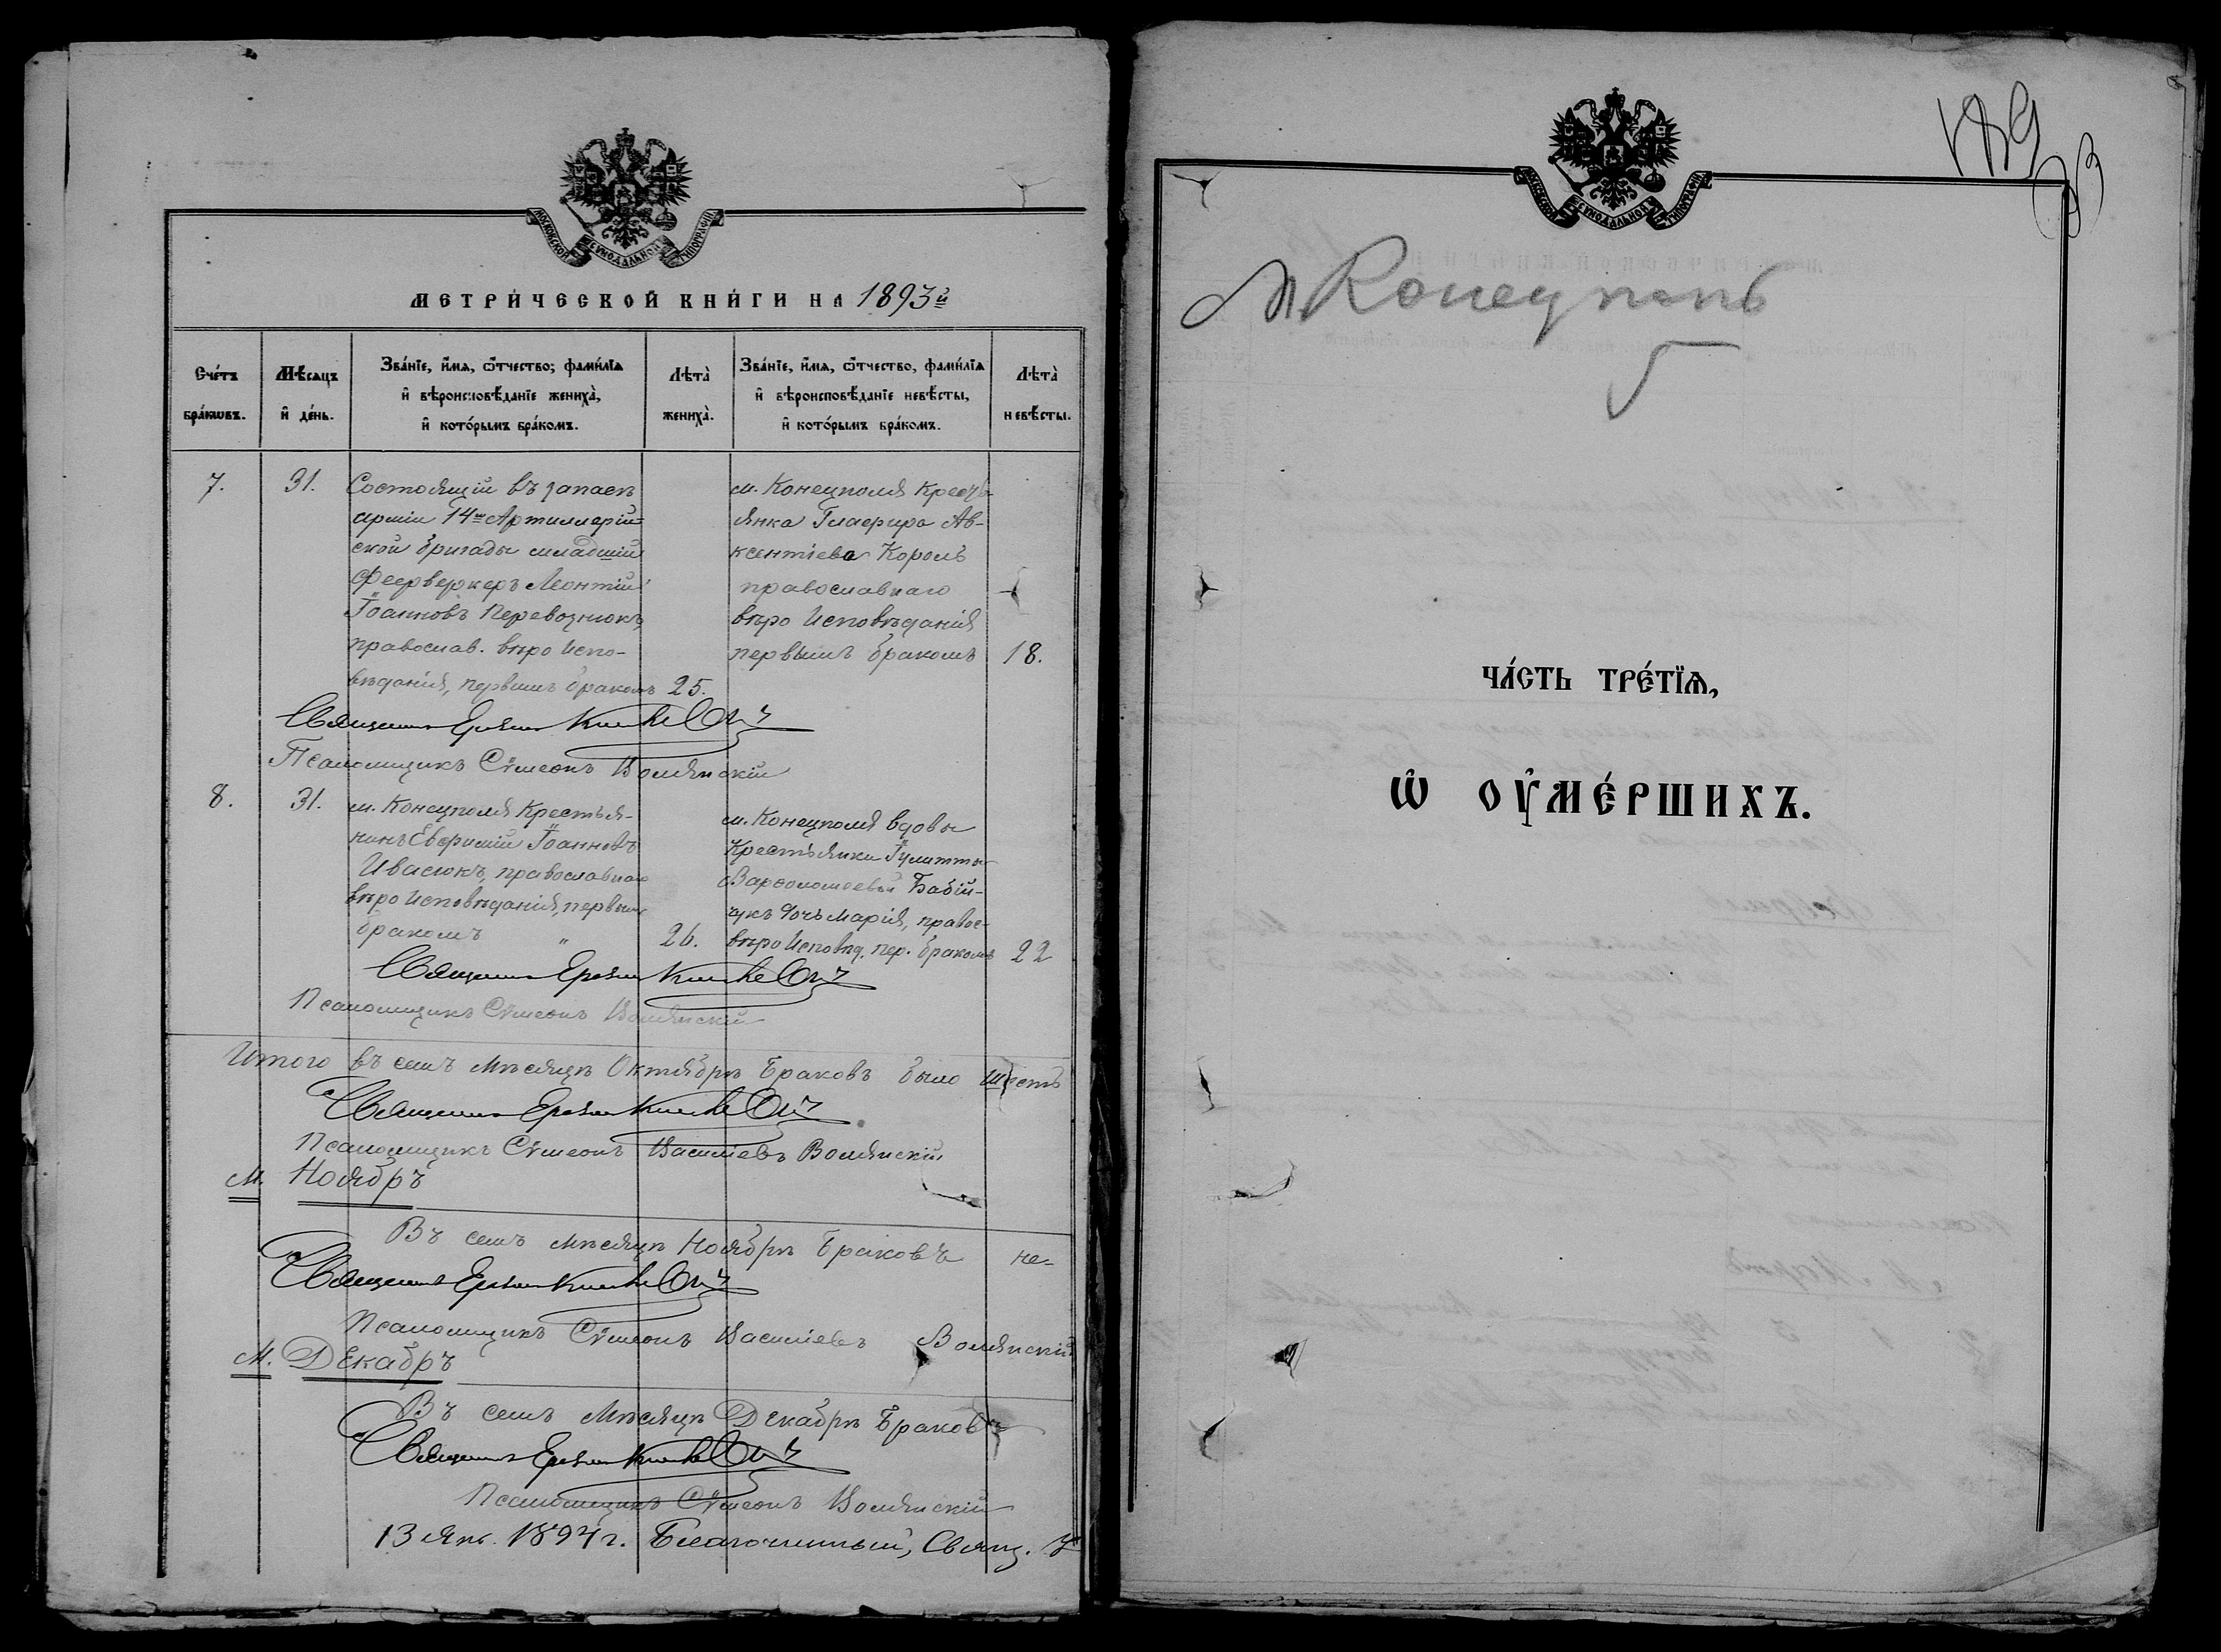 МОСКОВСКОЙ СѴНОДАЛЬНОЙ ТИПОГРАФІИ
МЕТРИ́ЧЕСКОЙ КНИ́ГИ НА 1893й
Сче́тъ бра́кѡвъ.
Мѣ́сяцъ и҆ де́нь.
Зва́нїе, и҆́мѧ, ѻ҆́тчество, фами́лїѧ и҆ вѣроисповѣ́данїе жениха̀, и҆ кото́рымъ бра́комъ.
Лѣта̀ жениха̀.
Зва́нїе, и҆́мѧ, ѻ҆́тчество, фами́лїѧ и҆ вѣроисповѣ́данїе невѣ́сты, и҆ кото́рымъ бра́комъ.
Лѣта̀ невѣ́сты.
7.
31.
Состоящій въ запасѣ
арміи 14й Артиллерій-
ской бригады младшій
Феерверкеръ Леонтій
Іоанновъ Перевознюкъ,
православ. вѣро Испо-
вѣданія, первымъ бракомъ
25.
м. Конецполя Кресть-
янка Глафира Ав-
ксентіева Король
православнаго
вѣро Исповѣданія
первымъ бракомъ
18.
Священникъ
Псаломщикъ Сѵмеонъ Волянскій
8.
31.
м. Конецполя Крестья-
нинъ Евфимій Іоанновъ
Ивасюкъ, православнаго
вѣро Исповѣданія, первымъ
бракомъ "
26.
м. Конецполя вдовы
Крестьянки Іулитты
Варфоломеевой Бабій-
чукъ дочь Марія, правос-
вѣро Исповѣд. пер. бракомъ
22
Священникъ
Псаломщикъ Сѵмеонъ Волянскій
Итого въ семъ Мѣсяцѣ Октябрѣ Браковъ было шесть
Священникъ
Псаломщикъ Сѵмеонъ Василіевъ Волянскій
М. Ноябрь
Въ семъ Мѣсяцѣ Ноябрѣ Браковъ не-
Священникъ
Псаломщикъ Сѵмеонъ Василіевъ Волянскій
М. Декабрь
Въ семъ Мѣсяцѣ Декабрѣ Браковъ
Священникъ
Псаломщикъ Сѵмеонъ Волянскій
13 Янв. 1894 г. Благочинный, Свящ.
189
МОСКОВСКОЙ СѴНОДАЛЬНОЙ ТИПОГРАФІИ
ЧА́СТЬ ТРЕ́ТЇѦ,
Ѡ҆ ОУ҆МЕ́РШИХЪ.